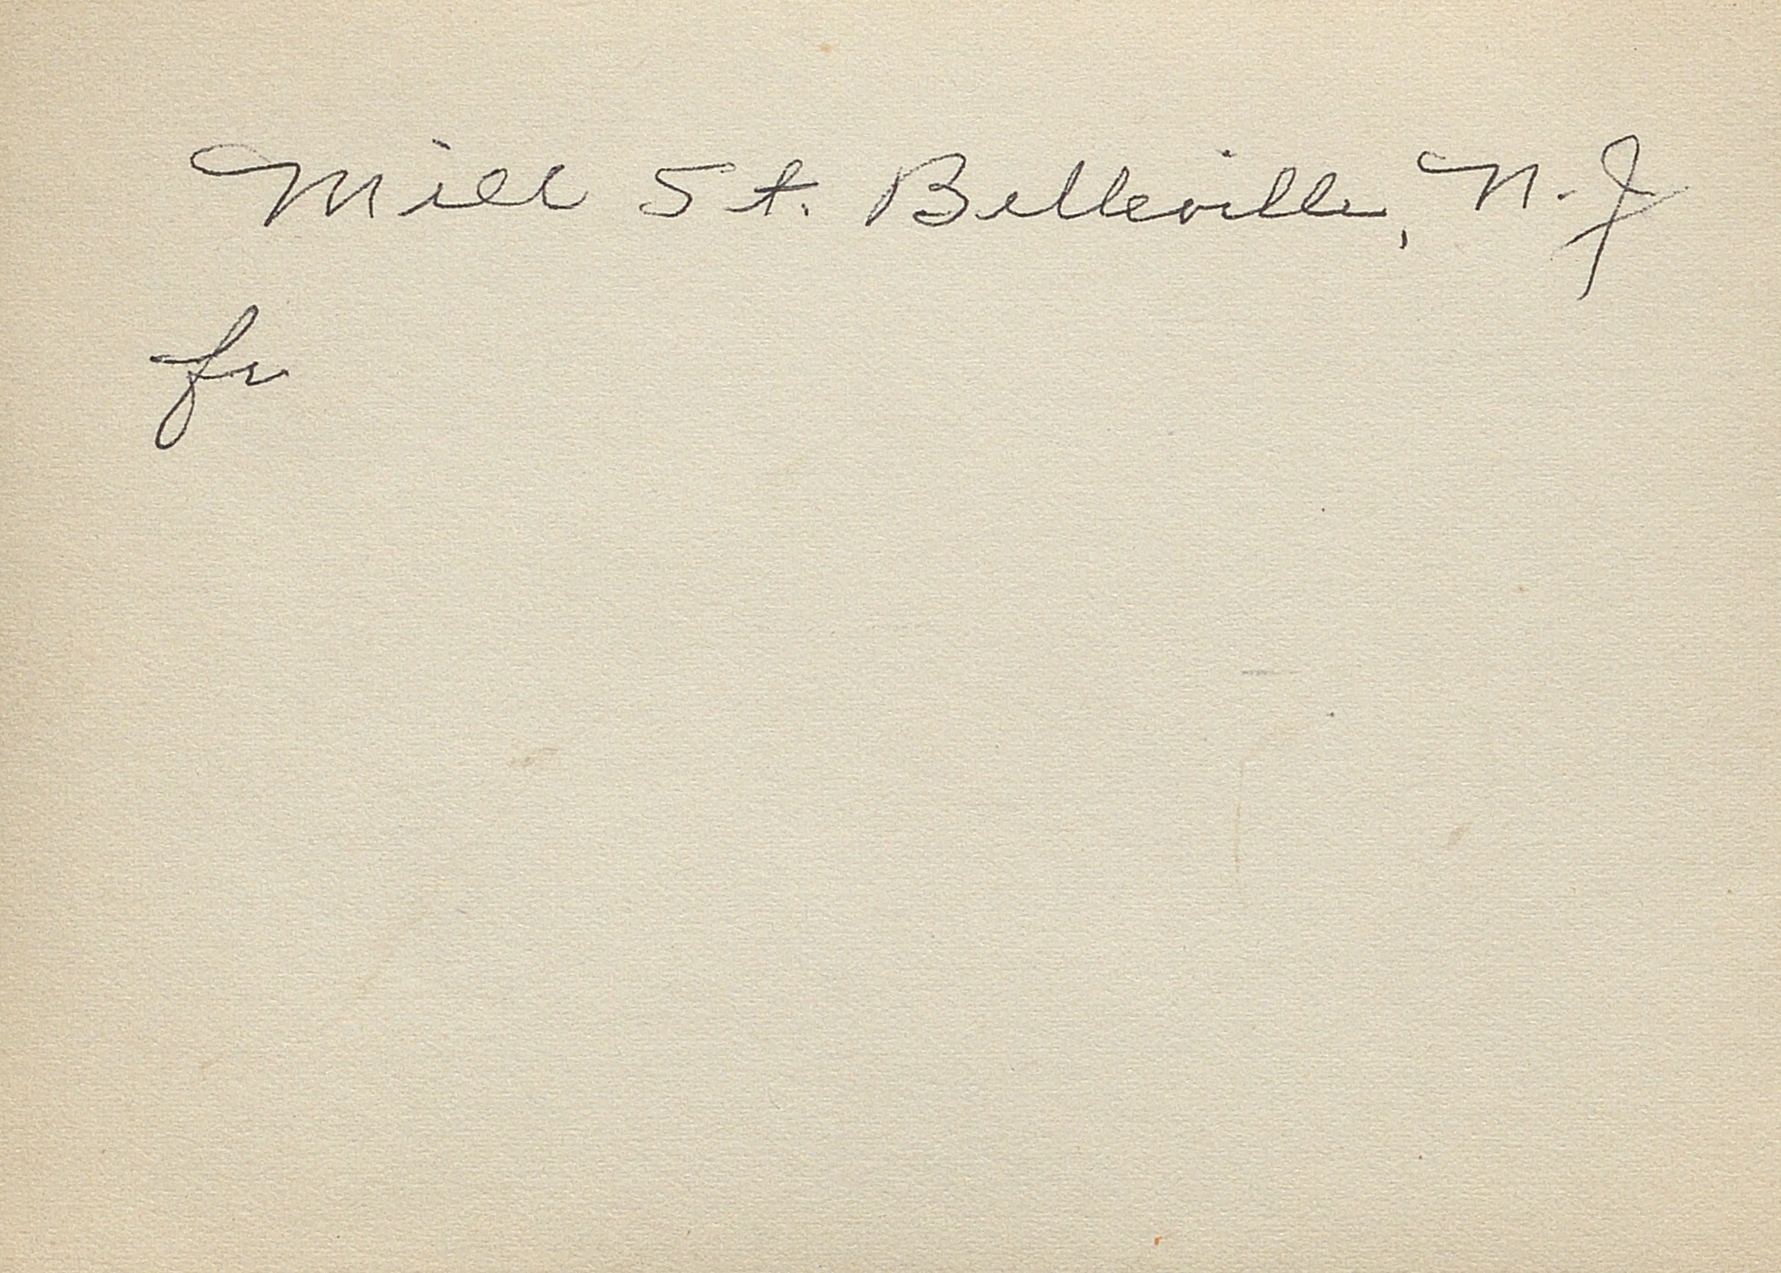 Mill St. Belleville, N.J
fr